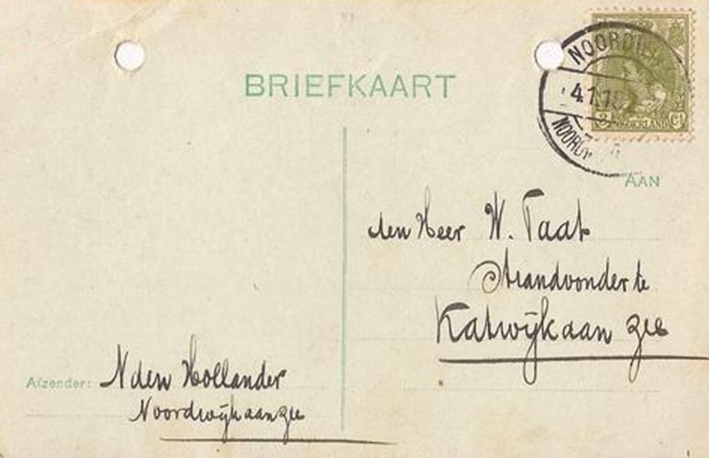 BRIEFKAART
4.1.19
NEDERLAND
AAN
den Heer W. Taat
Strandvonder te
Katwijk aan zee
Afzender: N den Hollander
Noordwijk aan zee